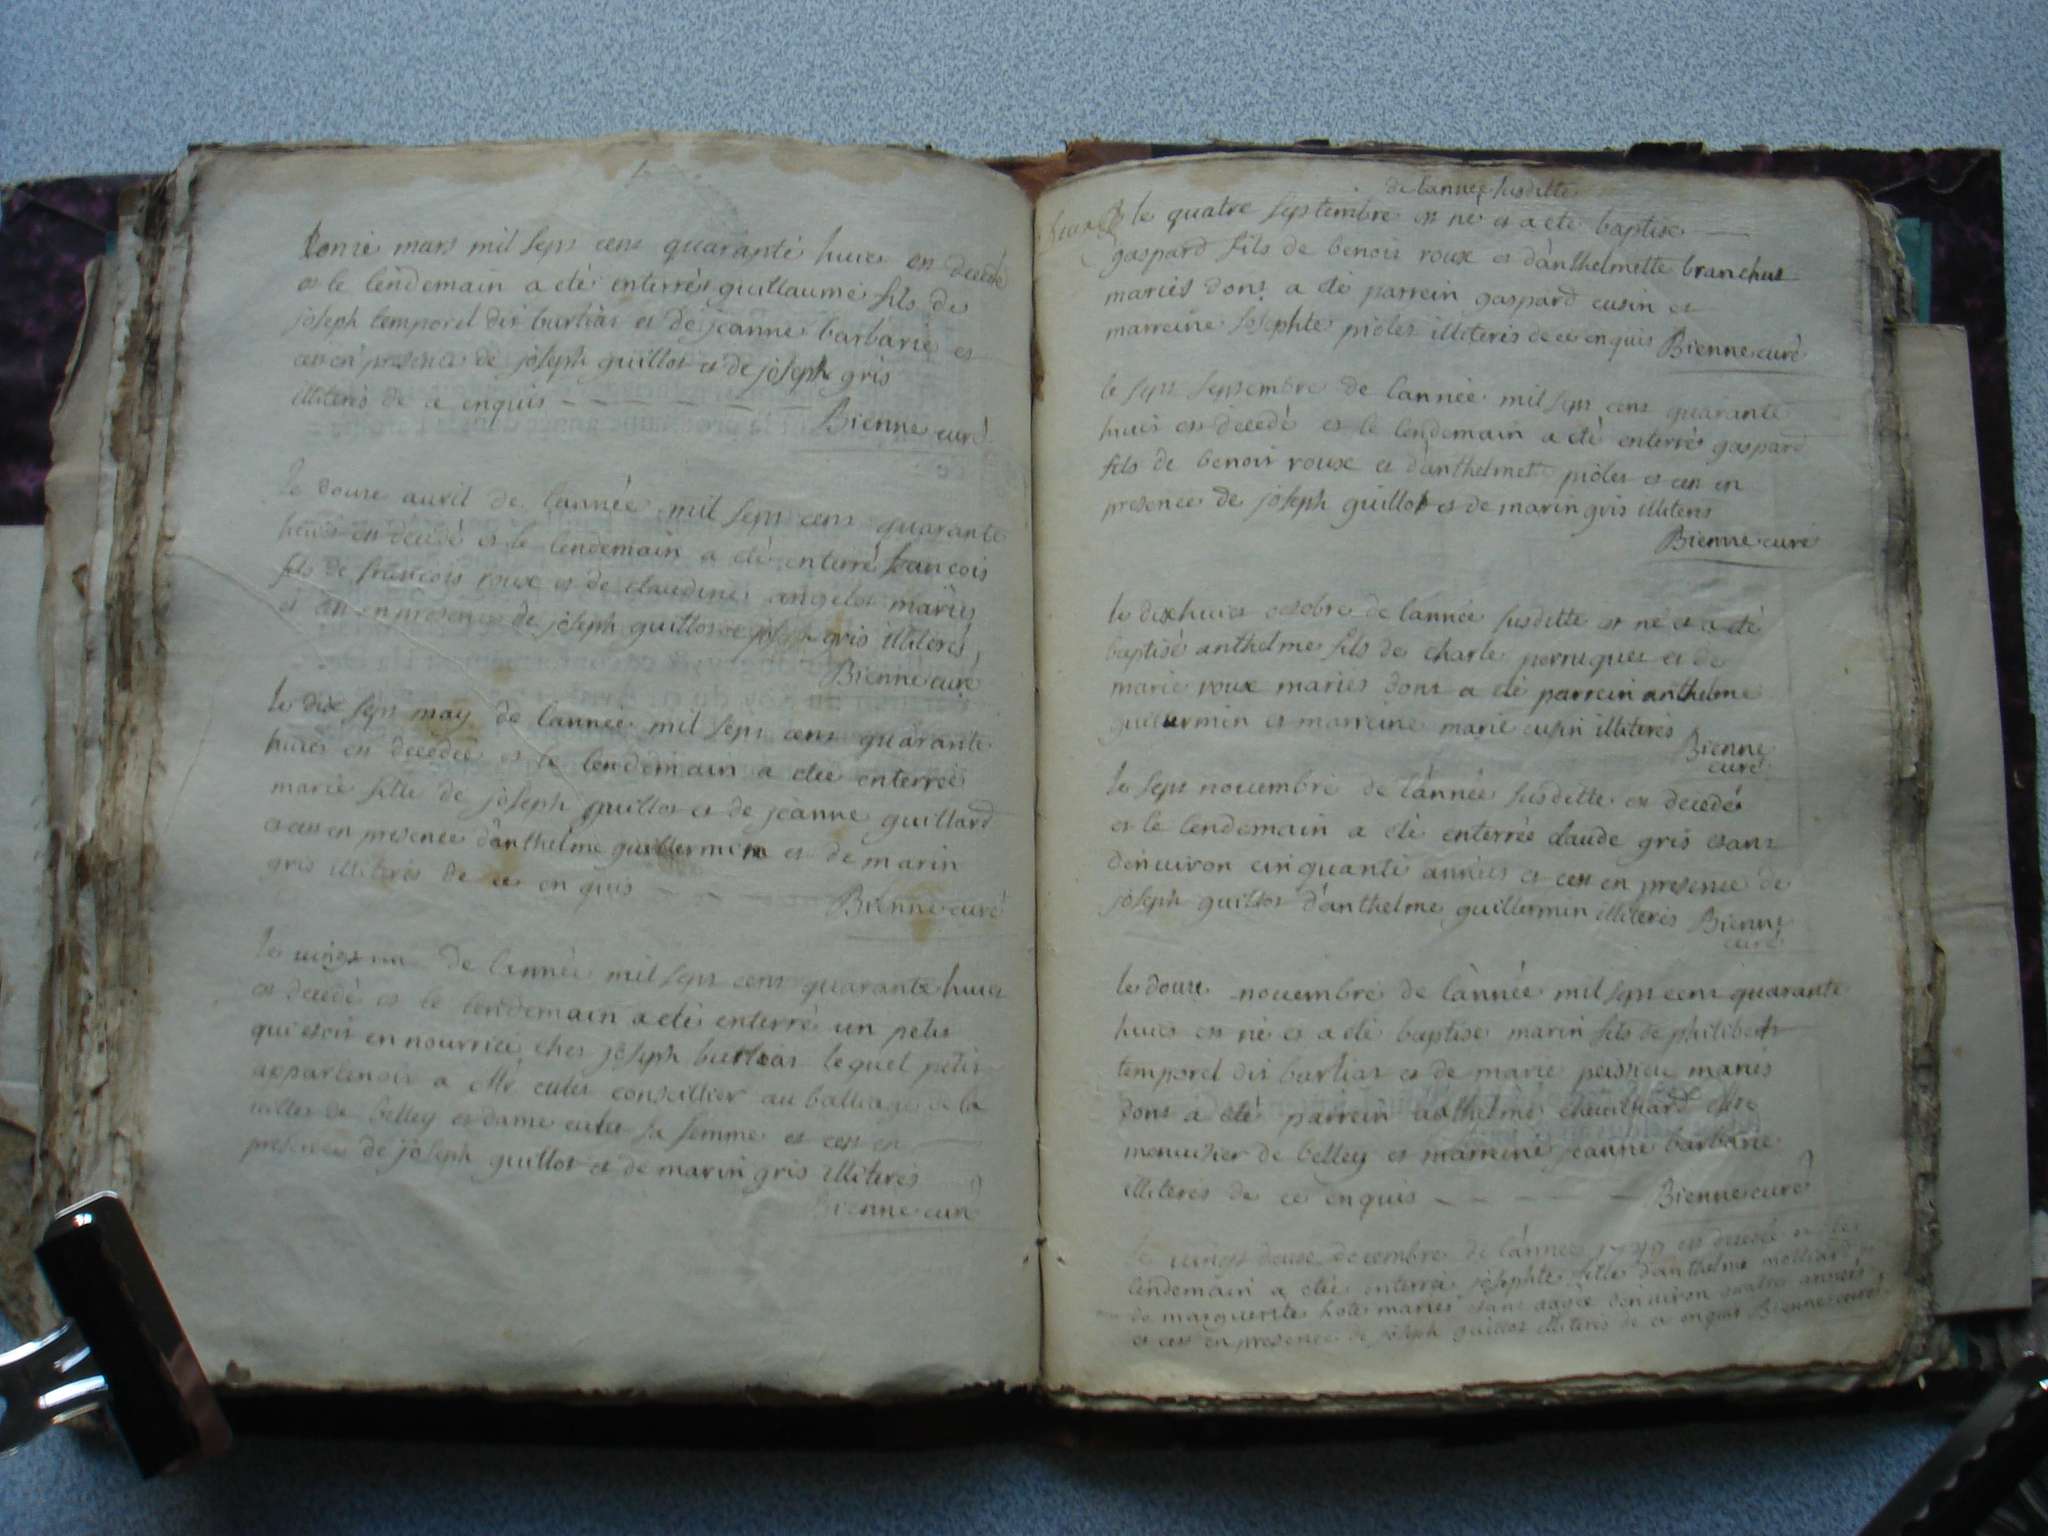 L'onie mars mil sept cent quarante huict est decedé
et le lendemain a eté enterrér guillaume fils de
joseph temporel dit burtiat et de jeanne barbarie et
cest en presence de joseph guillot et de joseph gris
illiterés de ce enquis Bienne curé
le douze auril de l'année mil sept cent quarante
huict est decedé et le lendemain a eté enterré francois
fils de francois roux et de claudine angelot mariés
et cest en presence de joseph guillot et joseph gris illiterés
Bienne curé
le dix sept may de l'année mil sept cent quarante
huict est decedée et le lendemain a etée enterrée
marie fille de joseph guillot et de jeanne guillard
et cest en presence d'anthelme guillermin et de marin
gris illiterés de ce enquis Bienne curé
le vingt un de l'année mil sept cent quarante huict
est decedé et le lendemain a eté enterré un petit
qui etoit en nourrice ches joseph burtiat lequel petit
appartenoit a Mr cutet conseillier au balliage de la
ville de belley et dame cutet sa femme et cest en
presence de joseph guillot et de marin gris illiterés
Bienne curé
de l'année susditte
le quatre septembre est né et a eté baptisé
gaspard fils de benoit roux et d'anthelmette branchut
mariés dont a eté parrein gaspard cusin et
marreine josephte piolet illiterés de ce enquis Bienne curé
le sept septembre de l'année mil sept cent quarante
huict est decedé et le lendemain a eté enterré gaspard
fils de benoit roux et d'anthelmette piolet et cest en
presence de joseph guillot et de marin gris illiterés
Bienne curé
le dixhuict octobre de l'année susditte est né et a eté
baptisé anthelme fils de charle perruquet et de
marie roux mariés dont a eté parrein anthelme
guillermin et marreine marie cusin illiterés
Bienne
curé
le sept nouembre de l'année susditte est decedé
et le lendemain a eté enterrée claude gris etant
d'enuiron cinquante années et cest en presence de
joseph guillot d'anthelme guillermin illiterés Bienne
curé
le douze nouembre de l'année mil sept cent quarante
huict est né et a eté baptisé marin fils de philibert
temporel dit burtiat et de marie peissieu mariés
dont a eté parrein anthelme cheuilliard
menuisier de belley et marreine jeanne barbarie
illiterés de ce enquis Bienne curé
le vingt deuxe decembre de l'année est decedé et le
lendemain a etée enterrée josephte fille d'anthelme molliard et
de marguerite hote mariés etant agée d'enuiron quatre années
et cest en presence de joseph guillot illiterés de ce enquis Bienne curé